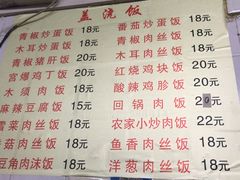 盖浇饭
青椒炒蛋饭 18元
木耳炒蛋饭 18元
青椒猪肝饭 20元
宫爆鸡丁饭 20元
木须肉饭 18元
麻辣豆腐饭 15元
雪菜肉丝饭 18元
香菇肉丝饭 18元
豆角肉沫饭 18元
番茄炒蛋饭 18元
青椒肉丝饭 18元
木耳肉丝饭 18元
红烧鸡块饭 20元
酸辣鸡胗饭 20元
回锅肉饭 20元
农家小炒肉饭 22元
鱼香肉丝饭 18元
洋葱肉丝饭 18元